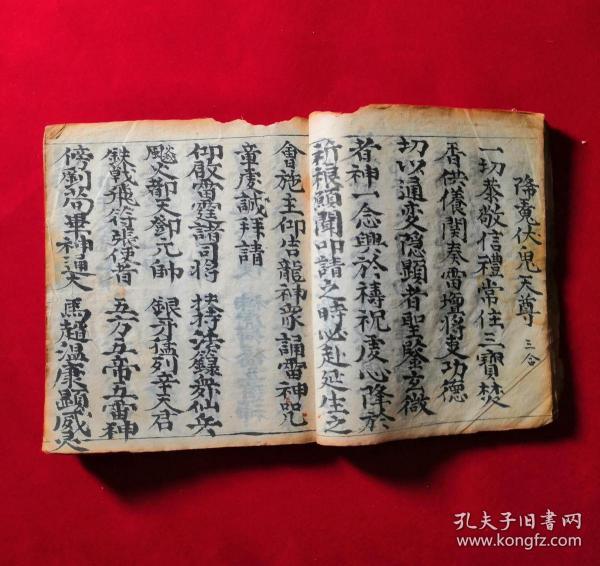 降魔伏鬼天尊 三合
一切恭敬信禮常住三寶焚
香供養関奏雷壇將吏功德
切以通变隐顯者聖鑒玄微
者神一念興於禱祝虔心降於
新根願聞叩請之時必赴延生之
會施主仰告龍神衆誦雷神咒
童虔誠拜請
仰啟雷霆諸司將 扶持法籙舞仙兵
飈火都天鄧元帥 銀牙猛列辛天君
鉄戟飛符張使者 五方五帝五雷神
傍劉苟畢神通大 馬趙溫康顯威灵
孔夫子旧書网
www.kongfz.com